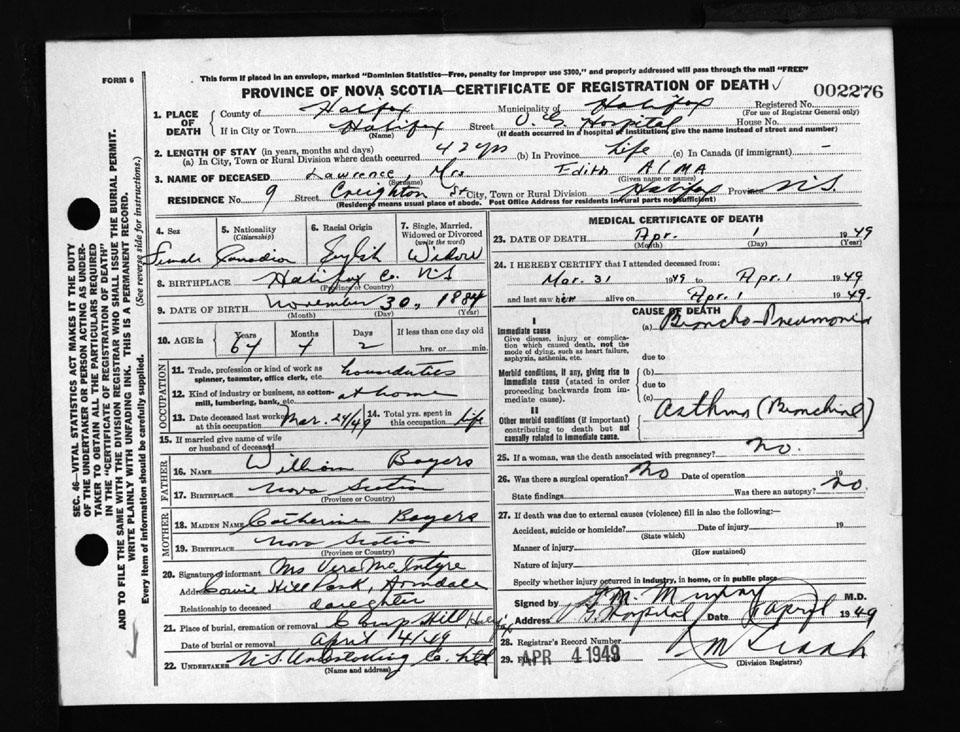 FORM 6
This form if placed in an envelope, marked "Dominion Statistics—Free, penalty for improper use $300," and properly addressed will pass through the mail "FREE"
PROVINCE OF NOVA SCOTIA—CERTIFICATE OF REGISTRATION OF DEATH
002276
1. PLACE OF DEATH County of Halifax Municipality of Halifax Registered No.
(For use of Registrar General only)
If in City or Town Halifax Street V. G. Hospital House No.
(Name) (If death occurred in a hospital or institution, give the name instead of street and number)
2. LENGTH OF STAY (in years, months and days)
(a) In City, Town or Rural Division where death occurred 42 yrs (b) In Province Life (c) In Canada (if immigrant) —
3. NAME OF DECEASED Lawrence, Mrs Edith Alma
(Surname) (Given name or names)
RESIDENCE No. 9 Street Creighton St City, Town or Rural Division Halifax Province N.S.
(Residence means usual place of abode. Post Office Address for residents in rural parts not sufficient)
4. Sex 5. Nationality 6. Racial Origin 7. Single, Married, Widowed or Divorced
(Citizenship) (write the word)
Female Canadian English Widow
8. BIRTHPLACE Halifax Co. N S
(Province or Country)
9. DATE OF BIRTH November 30, 1884
(Month) (Day) (Year)
10. AGE in Years Months Days If less than one day old
64 4 2 hrs. or min.
OCCUPATION
11. Trade, profession or kind of work as spinner, teamster, office clerk, etc. housduties
12. Kind of industry or business, as cotton-mill, lumbering, bank, etc. at home
13. Date deceased last worked at this occupation Mar. 24/49 14. Total yrs. spent in this occupation Life
15. If married give name of wife or husband of deceased
FATHER
16. NAME William Bayers
17. BIRTHPLACE Nova Scotia
(Province or Country)
MOTHER
18. MAIDEN NAME Catherine Bayers
19. BIRTHPLACE Nova Scotia
(Province or Country)
20. Signature of informant Ms Vera McIntyre
Address Cowie Hill Park, Armdale
Relationship to deceased daughter
21. Place of burial, cremation or removal Camp Hill Halifax
Date of burial or removal April 4/49
22. UNDERTAKER N.S. Undertaking Co. Ltd
(Name and address)
MEDICAL CERTIFICATE OF DEATH
23. DATE OF DEATH Apr. 1 1949
(Month) (Day) (Year)
24. I HEREBY CERTIFY that I attended deceased from:
Mar. 31 1949 to Apr. 1 1949
and last saw her alive on Apr. 1 1949.
CAUSE OF DEATH
I
Immediate cause (a) Broncho-Pneumonia
Give disease, injury or complication which caused death, not the mode of dying, such as heart failure, asphyxia, asthenia, etc.
due to
Morbid conditions, if any, giving rise to immediate cause (stated in order proceeding backwards from immediate cause).
(b)
due to
(c)
II
Other morbid conditions (if important) contributing to death but not causally related to immediate cause.
Asthma (Bronchial)
25. If a woman, was the death associated with pregnancy? No.
26. Was there a surgical operation? No Date of operation 19
State findings Was there an autopsy? No.
27. If death was due to external causes (violence) fill in also the following:—
Accident, suicide or homicide? Date of injury 19
(State which)
Manner of injury
(How sustained)
Nature of injury
Specify whether injury occurred in industry, in home, or in public place
Signed by M. Murray M.D.
Address V G Hospital Date April 1949
28. Registrar's Record Number
29. APR 4 1949
(Division Registrar)
SEC. 46—VITAL STATISTICS ACT MAKES IT THE DUTY OF THE UNDERTAKER OR PERSON ACTING AS UNDERTAKER TO OBTAIN ALL THE PARTICULARS REQUIRED IN THE "CERTIFICATE OF REGISTRATION OF DEATH" AND TO FILE THE SAME WITH THE DIVISION REGISTRAR WHO SHALL ISSUE THE BURIAL PERMIT.
WRITE PLAINLY WITH UNFADING INK. THIS IS A PERMANENT RECORD.
Every item of information should be carefully supplied. (See reverse side for instructions.)